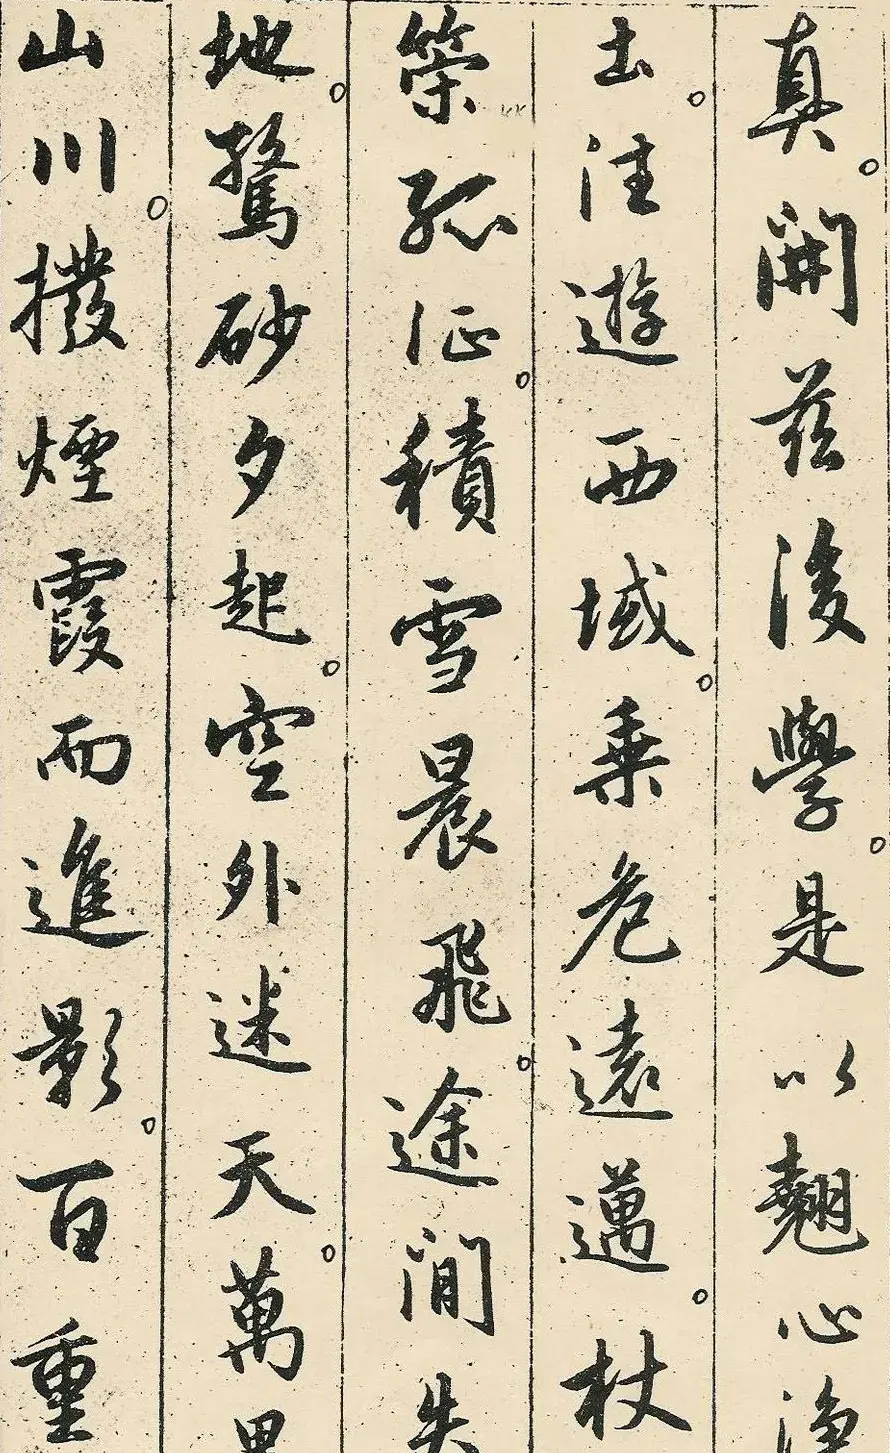 真。開茲後學。是以翹心淨
土。往遊西域。乘危遠邁。杖
策孤征。積雪晨飛。途間失
地。驚砂夕起。空外迷天。萬里
山川。撥煙霞而進影。百重